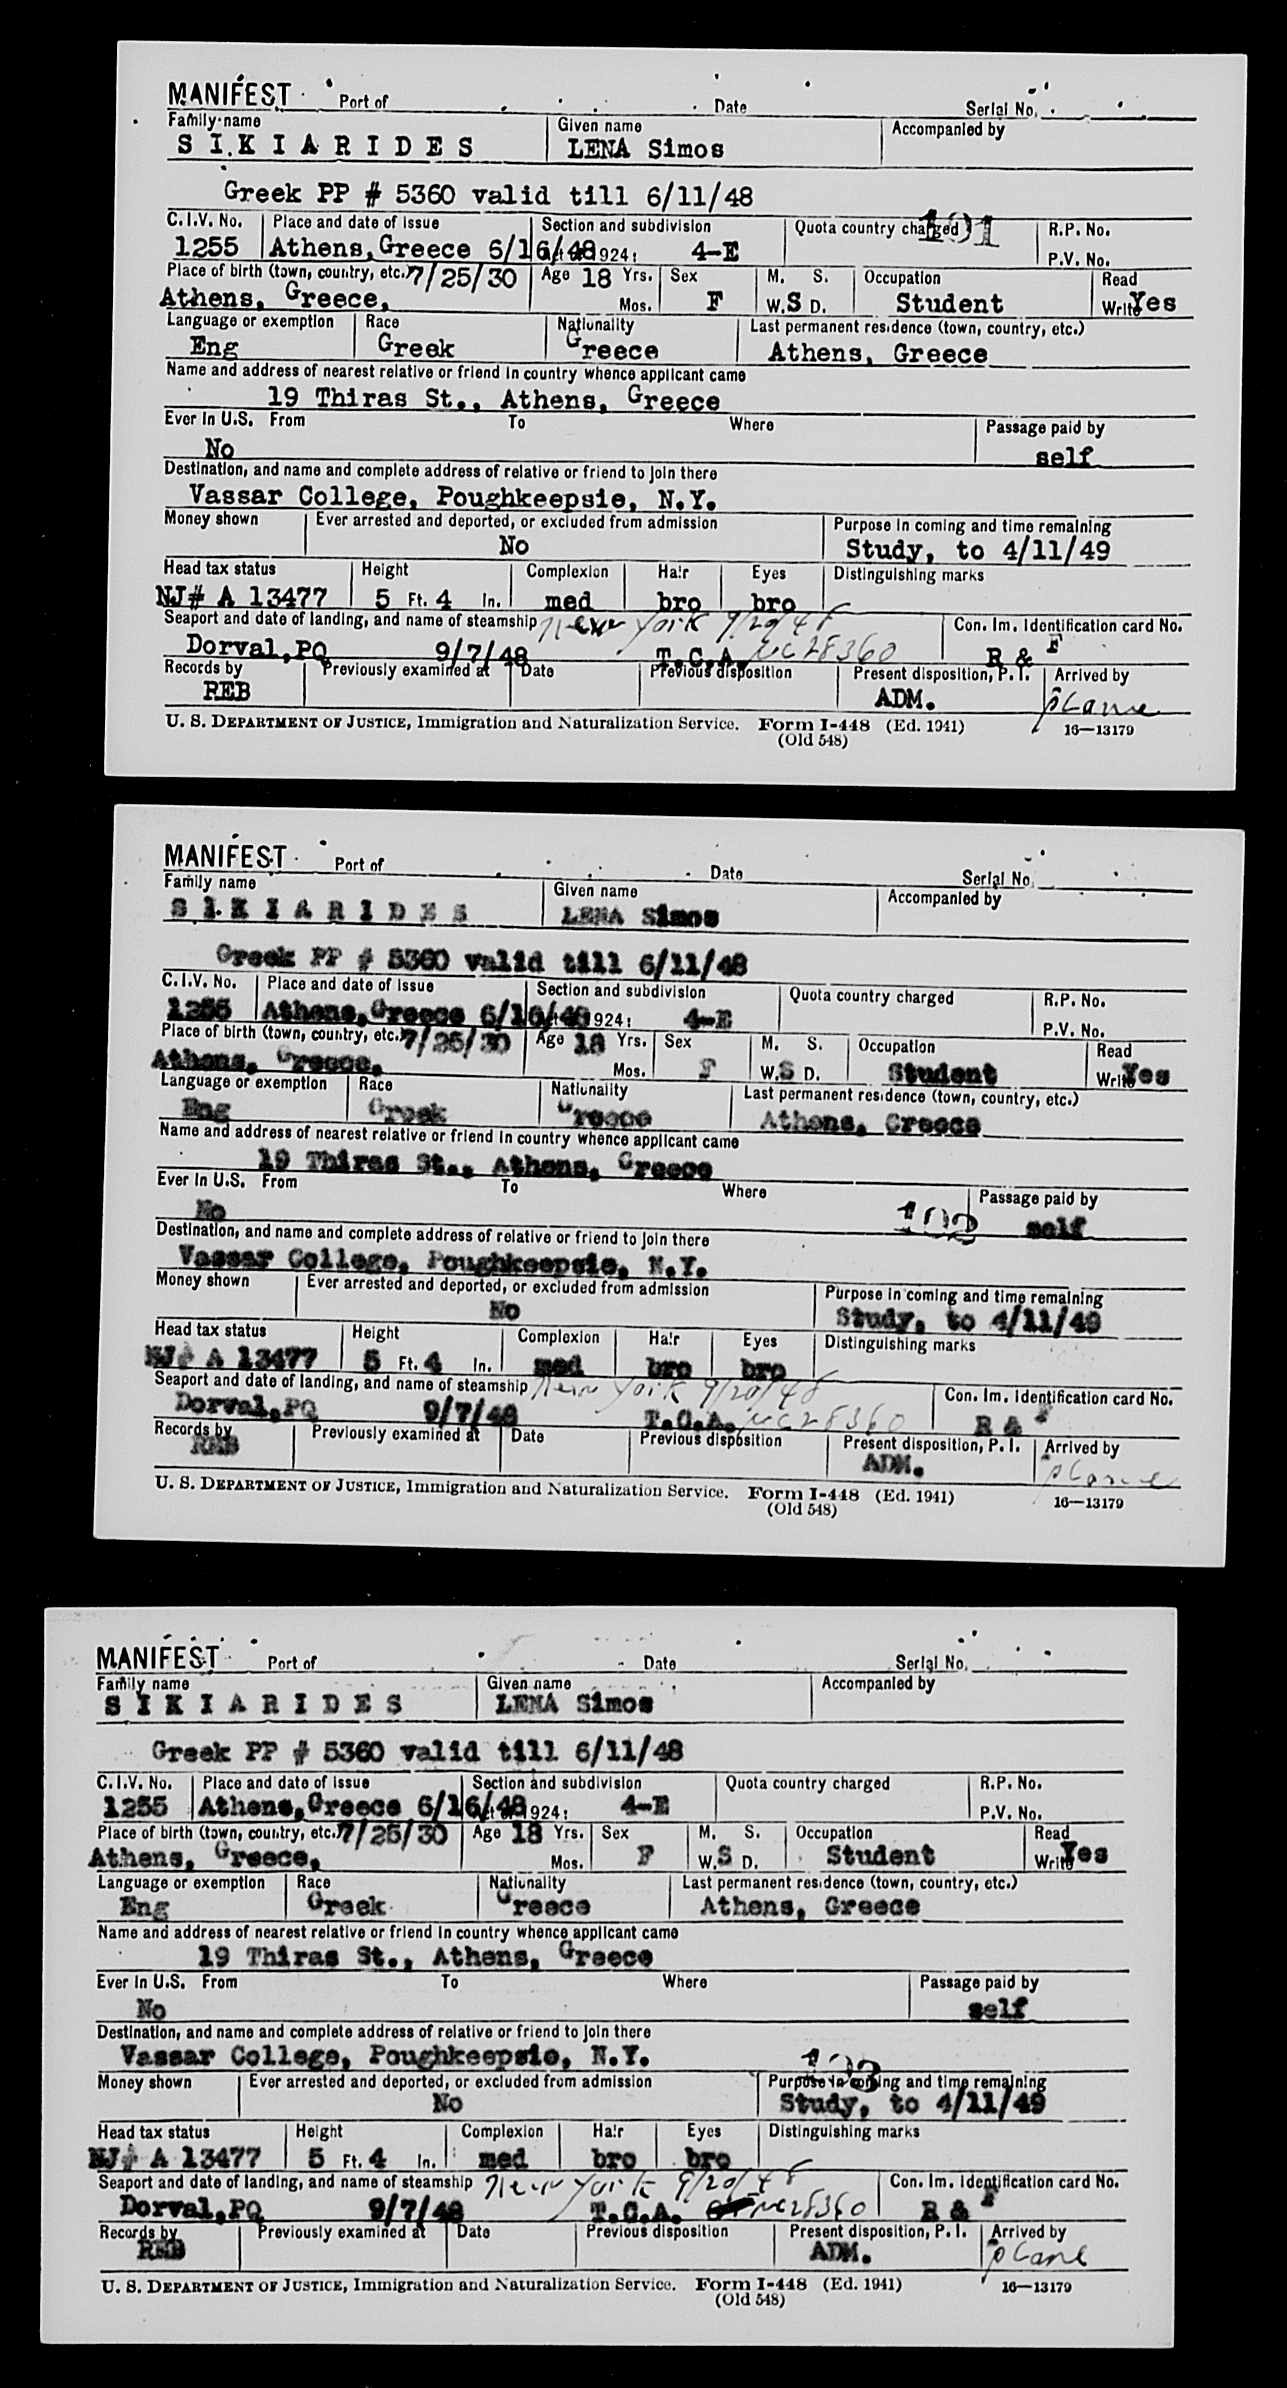 MANIFEST Port of Date Serial No.
Family name Given name Accompanied by
S I K I A R I D E S LENA Simos
Greek PP # 5360 valid till 6/11/48
C.I.V. No. Place and date of issue Section and subdivision Quota country charged 191 R.P. No.
1255 Athens, Greece 6/16/48 1924: 4-E P.V. No.
Place of birth (town, country, etc.) 7/25/30 Age 18 Yrs. Sex M. S. Occupation Read
Athens, Greece, Mos. F W. S D. Student Write Yes
Language or exemption Race Nationality Last permanent residence (town, country, etc.)
Eng Greek Greece Athens, Greece
Name and address of nearest relative or friend in country whence applicant came
19 Thiras St., Athens, Greece
Ever in U.S. From To Where Passage paid by
No self
Destination, and name and complete address of relative or friend to join there
Vassar College, Poughkeepsie, N.Y.
Money shown Ever arrested and deported, or excluded from admission Purpose in coming and time remaining
No Study, to 4/11/49
Head tax status Height Complexion Hair Eyes Distinguishing marks
NJ# A 13477 5 Ft. 4 In. med bro bro
Seaport and date of landing, and name of steamship New York 9/20/48 Con. Im. Identification card No.
Dorval, PQ 9/7/48 T.C.A. NC28360 R & F
Records by Previously examined at Date Previous disposition Present disposition, P. I. Arrived by
REB ADM. plane
U. S. DEPARTMENT OF JUSTICE, Immigration and Naturalization Service. Form I-448 (Ed. 1941) 16—13179
(Old 548)
MANIFEST Port of Date Serial No.
Family name Given name Accompanied by
S I K I A R I D E S LENA Simos
Greek PP # 5360 valid till 6/11/48
C.I.V. No. Place and date of issue Section and subdivision Quota country charged R.P. No.
1255 Athens, Greece 6/16/48 1924: 4-E P.V. No.
Place of birth (town, country, etc.) 7/25/30 Age 18 Yrs. Sex M. S. Occupation Read
Athens, Greece, Mos. F W. S D. Student Write Yes
Language or exemption Race Nationality Last permanent residence (town, country, etc.)
Eng Greek Greece Athens, Greece
Name and address of nearest relative or friend in country whence applicant came
19 Thiras St., Athens, Greece
Ever in U.S. From To Where Passage paid by
No self
Destination, and name and complete address of relative or friend to join there
Vassar College, Poughkeepsie, N.Y.
Money shown Ever arrested and deported, or excluded from admission Purpose in coming and time remaining
No Study, to 4/11/49
Head tax status Height Complexion Hair Eyes Distinguishing marks
NJ# A 13477 5 Ft. 4 In. med bro bro
Seaport and date of landing, and name of steamship New York 9/20/48 Con. Im. Identification card No.
Dorval, PQ 9/7/48 T.C.A. NC28360 R & F
Records by Previously examined at Date Previous disposition Present disposition, P. I. Arrived by
REB ADM. plane
U. S. DEPARTMENT OF JUSTICE, Immigration and Naturalization Service. Form I-448 (Ed. 1941) 16—13179
(Old 548)
MANIFEST Port of Date Serial No.
Family name Given name Accompanied by
S I K I A R I D E S LENA Simos
Greek PP # 5360 valid till 6/11/48
C.I.V. No. Place and date of issue Section and subdivision Quota country charged R.P. No.
1255 Athens, Greece 6/16/48 1924: 4-E P.V. No.
Place of birth (town, country, etc.) 7/25/30 Age 18 Yrs. Sex M. S. Occupation Read
Athens, Greece, Mos. F W. S D. Student Write Yes
Language or exemption Race Nationality Last permanent residence (town, country, etc.)
Eng Greek Greece Athens, Greece
Name and address of nearest relative or friend in country whence applicant came
19 Thiras St., Athens, Greece
Ever in U.S. From To Where Passage paid by
No self
Destination, and name and complete address of relative or friend to join there
Vassar College, Poughkeepsie, N.Y.
Money shown Ever arrested and deported, or excluded from admission Purpose in coming and time remaining
No Study, to 4/11/49
Head tax status Height Complexion Hair Eyes Distinguishing marks
NJ# A 13477 5 Ft. 4 In. med bro bro
Seaport and date of landing, and name of steamship New York 9/20/48 Con. Im. Identification card No.
Dorval, PQ 9/7/48 T.C.A. NC28360 R & F
Records by Previously examined at Date Previous disposition Present disposition, P. I. Arrived by
REB ADM. plane
U. S. DEPARTMENT OF JUSTICE, Immigration and Naturalization Service. Form I-448 (Ed. 1941) 16—13179
(Old 548)